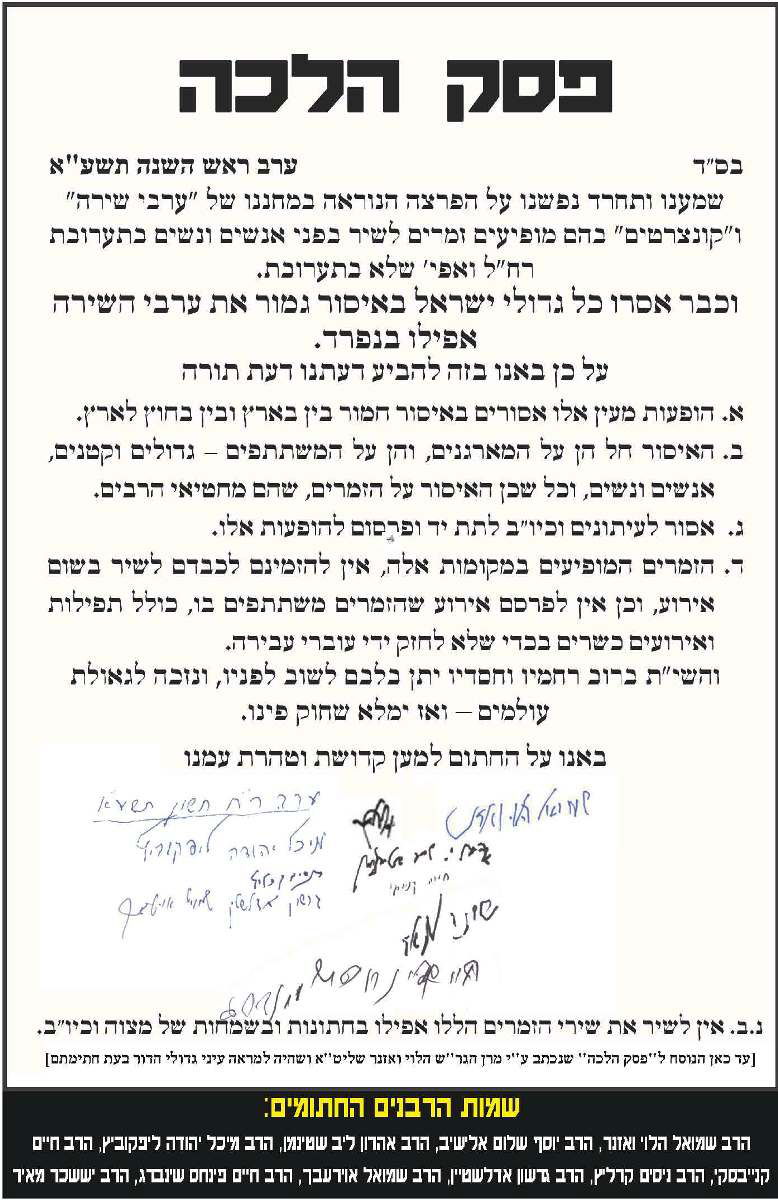 פסק הלכה
בס"ד ערב ראש השנה תשע"א
שמענו ותחרד נפשנו על הפרצה הנוראה במחננו של "ערבי שירה"
ו"קונצרטים" בהם מופיעים זמרים לשיר בפני אנשים ונשים בתערובת
רח"ל ואפי' שלא בתערובת.
וכבר אסרו כל גדולי ישראל באיסור גמור את ערבי השירה
אפילו בנפרד.
על כן באנו בזה להביע דעתנו דעת תורה
א. הופעות מעין אלו אסורים באיסור חמור בין בארץ ובין בחוץ לארץ.
ב. האיסור חל הן על המארגנים, והן על המשתתפים – גדולים וקטנים,
אנשים ונשים, וכל שכן האיסור על הזמרים, שהם מחטיאי הרבים.
ג. אסור לעיתונים וכיו"ב לתת יד ופרסום להופעות אלו.
ד. הזמרים המופיעים במקומות אלה, אין להזמינם לכבדם לשיר בשום
אירוע, וכן אין לפרסם אירוע שהזמרים משתתפים בו, כולל תפילות
ואירועים כשרים בכדי שלא לחזק ידי עוברי עבירה.
והשי"ת ברוב רחמיו וחסדיו יתן בלבם לשוב לפניו, ונזכה לגאולת
עולמים – ואז ימלא שחוק פינו.
באנו על החתום למען קדושת וטהרת עמנו
ערב ר"ח חשון תשע"א
שמואל הלוי ואזנר
מיכל יהודה ליפקוביץ
חיים קניבסקי
נ.ב. אין לשיר את שירי הזמרים הללו אפילו בחתונות ובשמחות של מצוה וכיו"ב.
[עד כאן הנוסח ל"פסק הלכה" שנכתב ע"י מרן הגר"ש הלוי ואזנר שליט"א ושהיה למראה עיני גדולי הדור בעת חתימתם]
שמות הרבנים החתומים:
הרב שמואל הלוי ואזנר, הרב יוסף שלום אלישיב, הרב אהרון ליב שטינמן, הרב מיכל יהודה ליפקוביץ, הרב חיים
קנייבסקי, הרב ניסים קרליץ, הרב גרשון אדלשטיין, הרב שמואל אוירעבך, הרב חיים פינחס שינברג, הרב יששכר מאיר